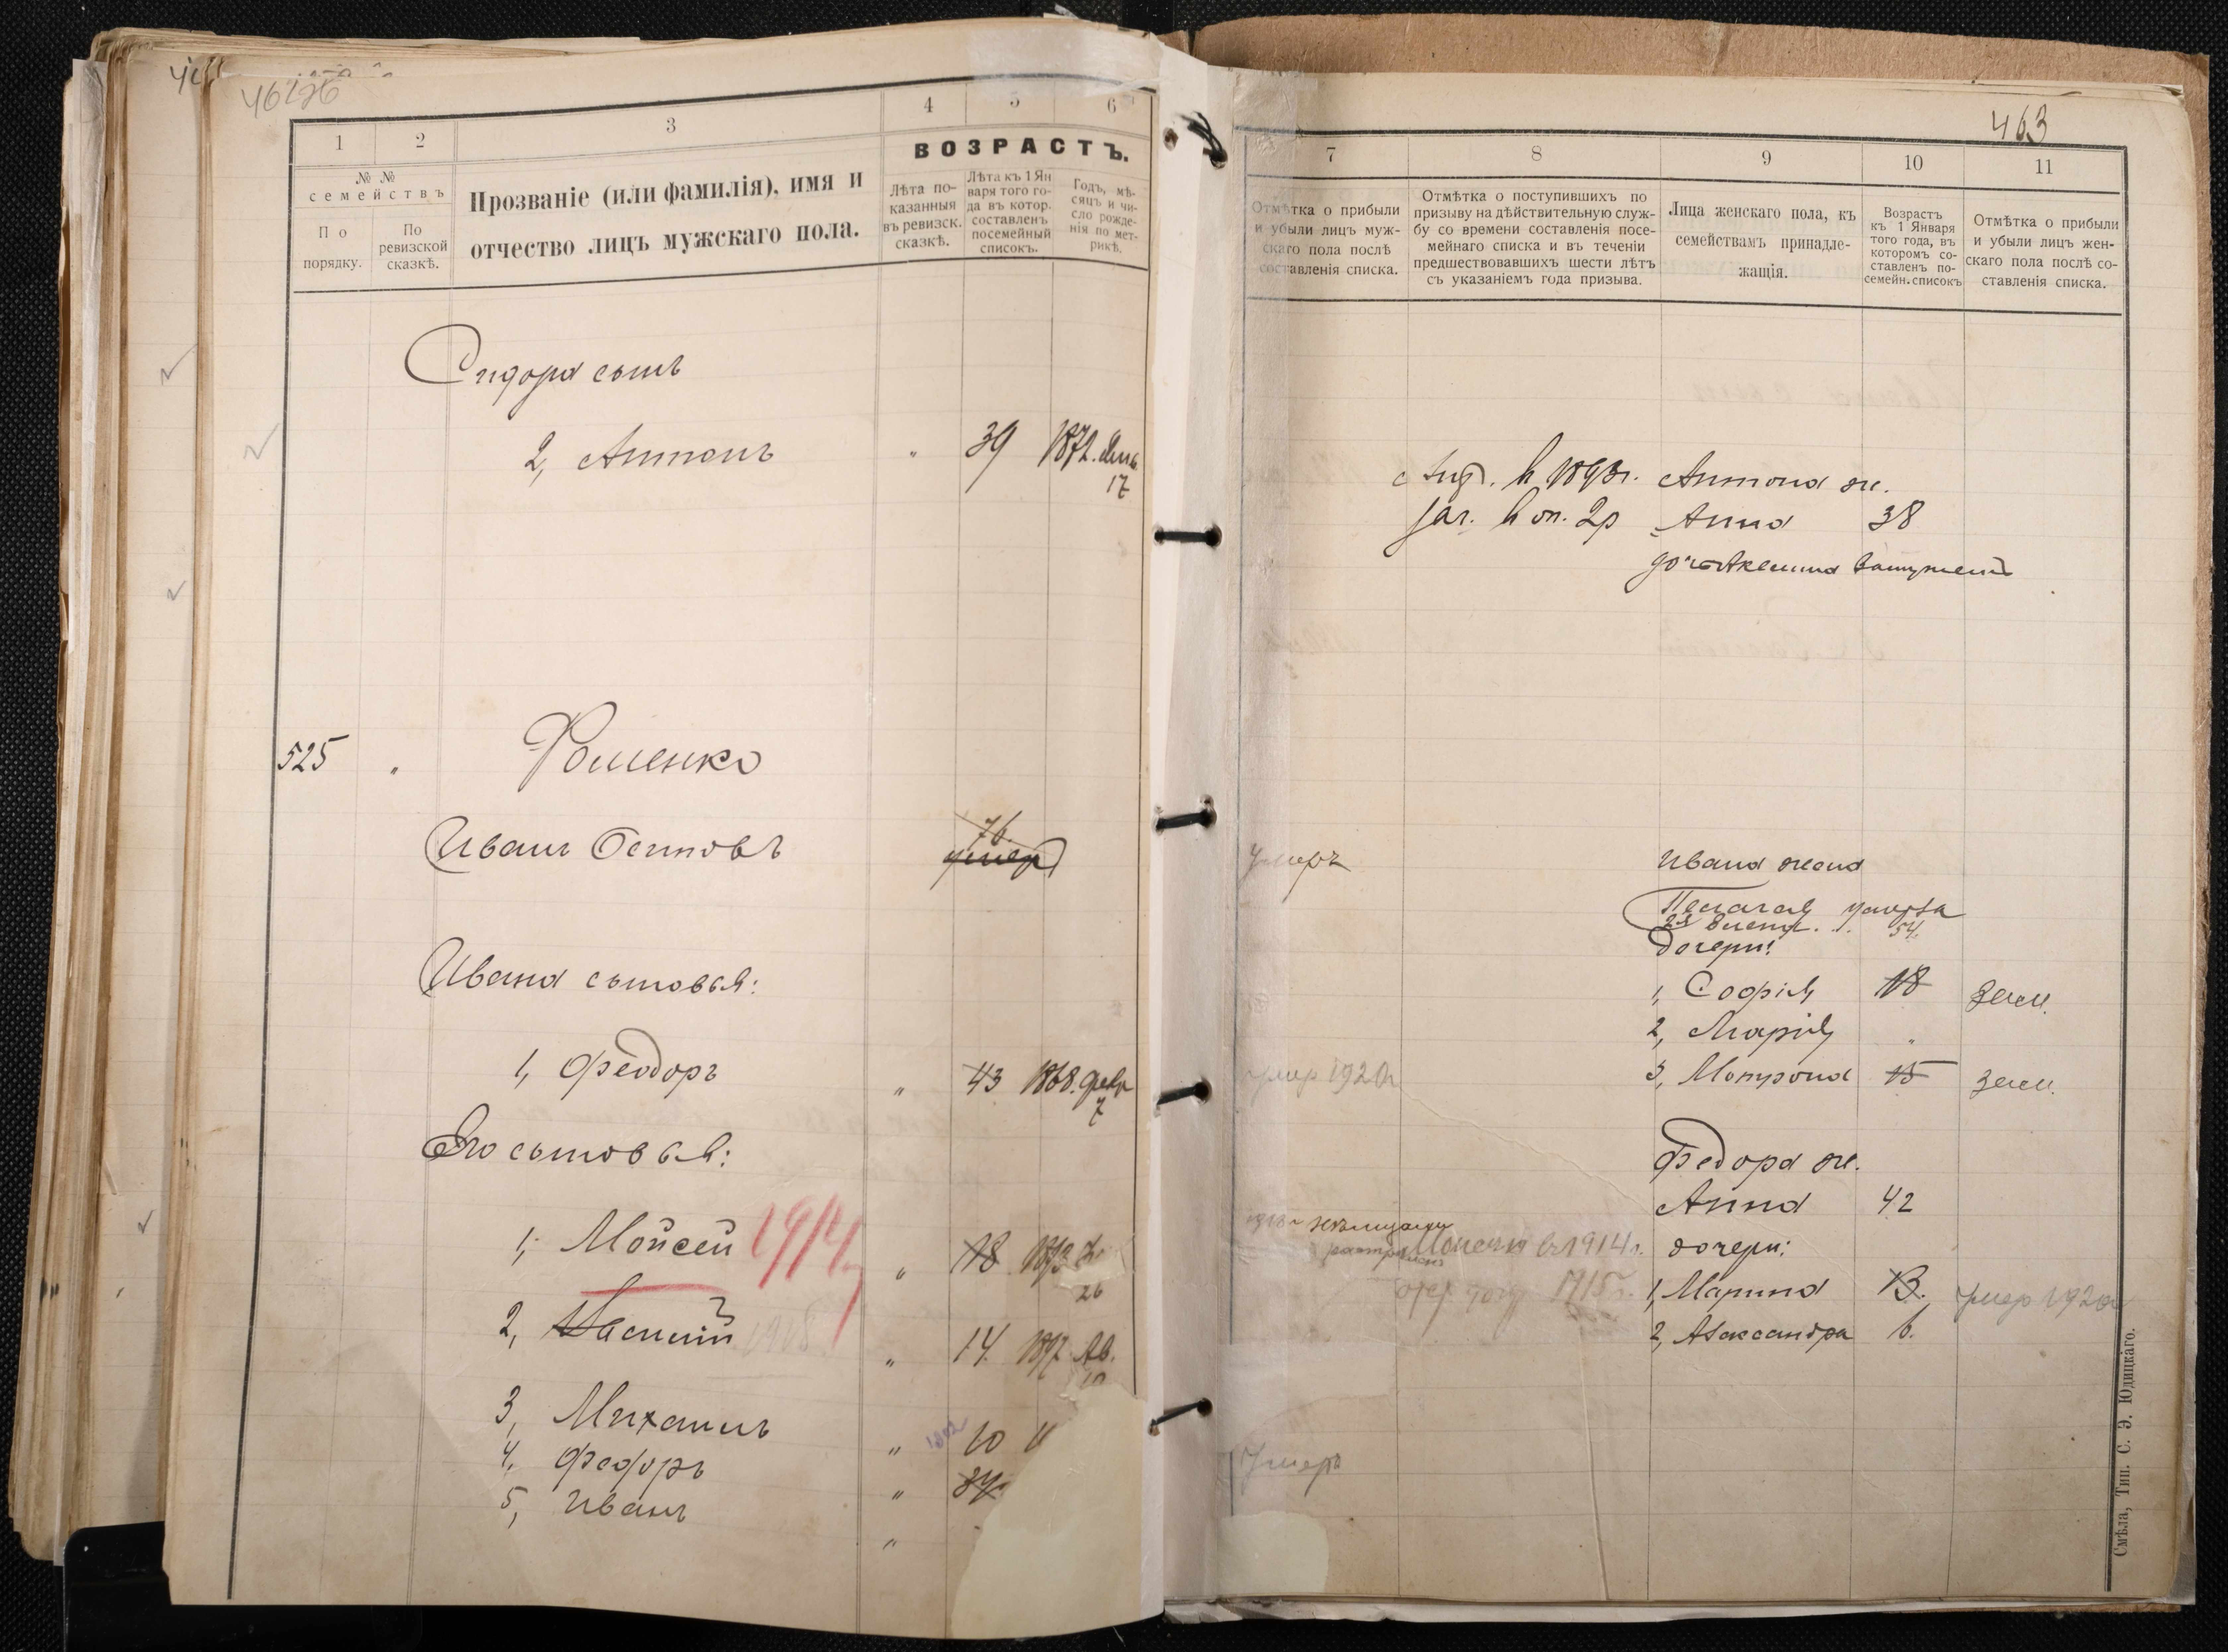 462об
1
2
3
4
5
6
№ №
семействъ
По
порядку.
По
ревизской
сказкѣ.
Прозваніе (или фамилія), имя и
отчество лицъ мужскаго пола.
ВОЗРАСТЪ.
Лѣта по-
казанныя
въ ревизск.
сказкѣ.
Лѣта къ 1 Ян
варя того го-
да въ котор.
составленъ
посемейный
списокъ.
Годъ, мѣ-
сяцъ и чи-
сло рожде-
нія по мет-
рикѣ.
Сидора сынъ
2, Антонъ " 39 1872.
17
525 " Фоменко
Иванъ Осиповъ 76
умеръ
Ивана сыновья:
1, Феодоръ " 43 1868. февр
7
Его сыновья:
1, Мойсей 1914 " 18 1893
26
2, Василій 1918 " 14 1897 Ав.
10
3, Михаилъ " 1902 10
4, Федоръ "
5, Иванъ "
463
7
8
9
10
11
Отмѣтка о прибыли
и убыли лицъ муж-
скаго пола послѣ
составленія списка.
Отмѣтка о поступившихъ по
призыву на дѣйствительную служ-
бу со времени составленія посе-
мейнаго списка и въ теченіи
предшествовавшихъ шести лѣтъ
съ указаніемъ года призыва.
Лица женскаго пола, къ
семействамъ принадле-
жащія.
Возрастъ
къ 1 Января
того года, въ
которомъ со-
ставленъ по-
семейн. списокъ
Отмѣтка о прибыли
и убыли лицъ жен-
скаго пола послѣ со-
ставленія списка.
в 1893г. Антона ж.
зач. в оп. 2р Анна 38
дочь Аксенія
Умеръ Ивана жена
Пелагея умерла
2я 54.
Дочери:
1, Софія 18 зам.
2, Марія "
умер 1920г 3, Матрона 15 зам.
Федора ж.
Анна 42
1918г нѣмцами
Моисей въ 1914г. дочери:
1915г. 1, Марина 13. умер 1920г
2, Александра 6.
Умеръ
Смѣла, Тип. С. Э. Юдицкаго.